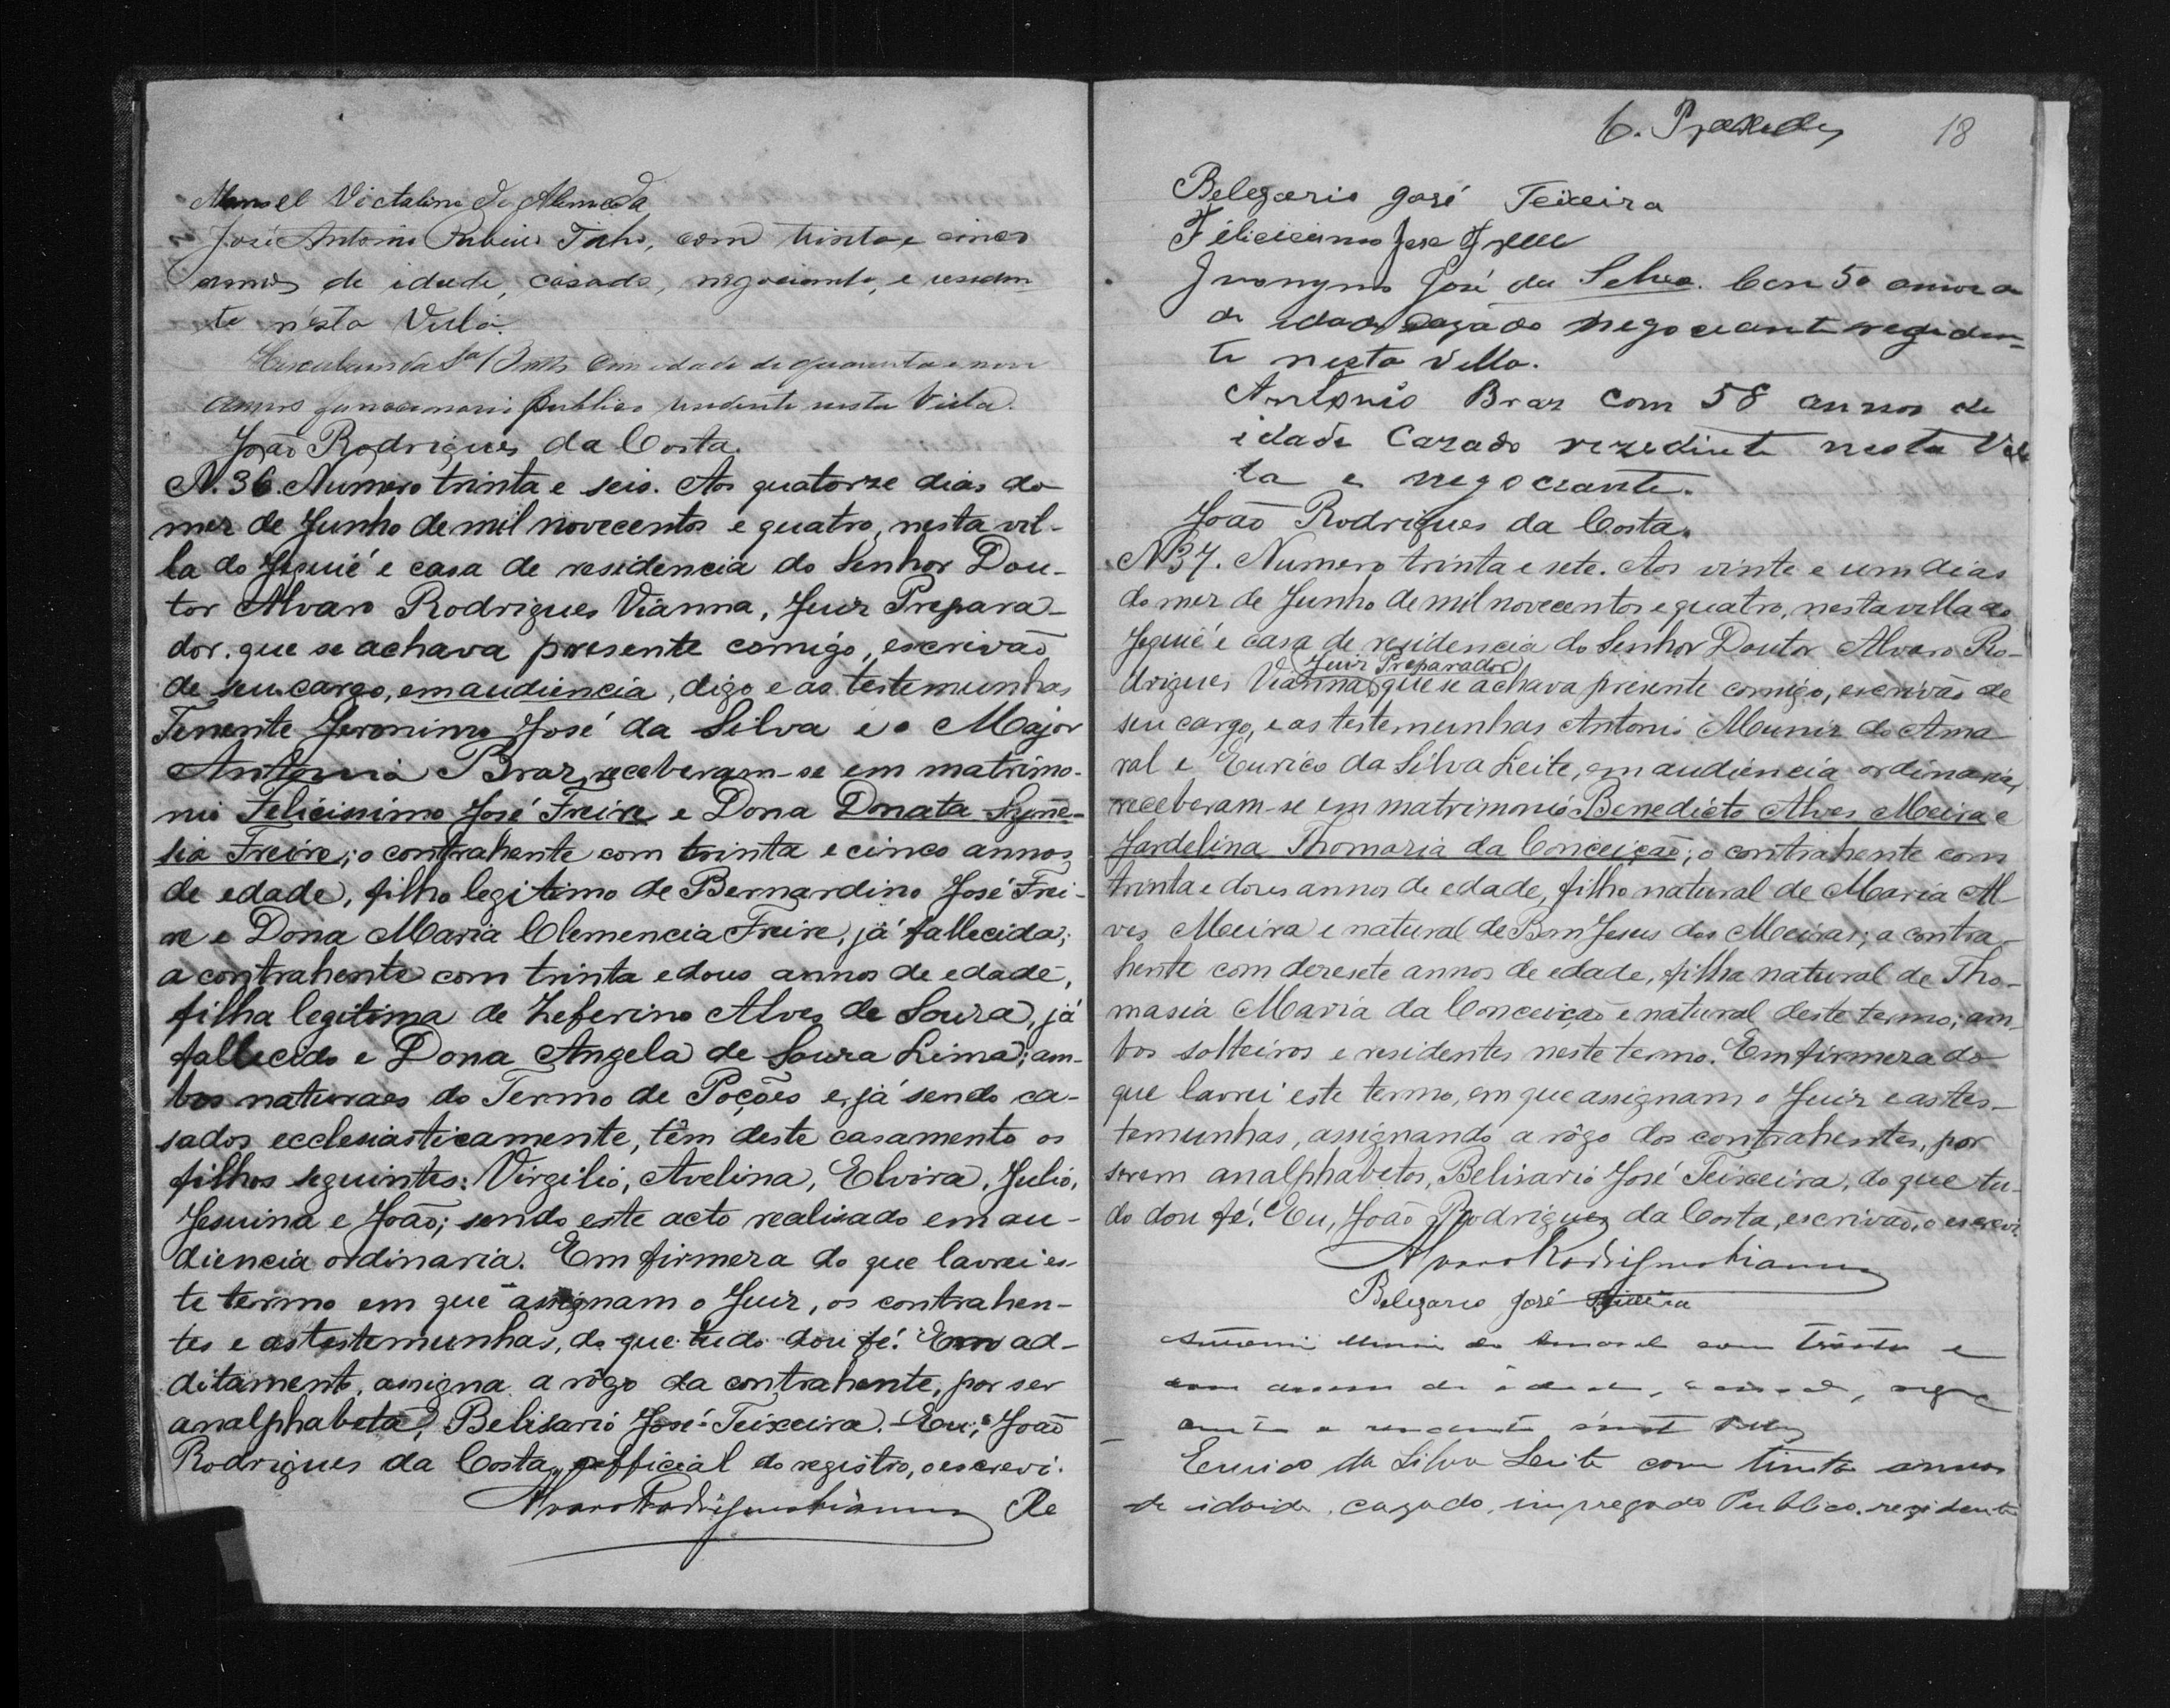 Manoel Victalino de Almeida
José Antonio Ribeiro Filho, com trinta e cinco
annos de idade, casado, negociante, e residen
te nésta Villa.
com idade de quarenta e nove
annos funccionario publico residente nesta Villa.
João Rodrigues da Costa.
N. 36. Numero trinta e seis. Aos quatorze dias do
mez de Junho de mil novecentos e quatro, nesta vil-
la do Jequié e casa de residencia do Senhor Dou-
tor Alvaro Rodrigues Vianna, Juiz Prepara-
dor. que se achava presente comigo, escrivão
de seu cargo, em audiencia, digo e as testemunhas
Tenente Jeronimo José da Silva e o Major
Antonio Braz, receberam-se em matrimo-
nio Felicissimo José Freire e Dona Donata Syne-
sia Freire; o contrahente com trinta e cinco annos
de edade, filho legitimo de Bernardino José Frei-
re e Dona Maria Clemencia Freire, já fallecida;
a contrahente com trinta e dous annos de edade,
filha legitima de Zeferino Alves de Souza, já
fallecido e Dona Angela de Souza Lima; am-
bos naturaes do Termo de Poções e, já sendo ca-
sados ecclesiasticamente, têm deste casamento os
filhos seguintes: Virgilio, Avelina, Elvira, Julio,
Jesuina e João; sendo este acto realisado em au-
diencia ordinaria. Em firmeza do que lavrei es-
te termo em que assignam o Juiz, os contrahen-
tes e as testemunhas, do que tudo dou fé. Em ad-
ditamento, assigna a rôgo da contrahente, por ser
analphabeta, Belisario José Teixeira. Eu, João
Rodrigues da Costa, official do registro, o escrevi.
Alvaro Rodrigues Vianna Re
18
Belezario José Teixeira
Felicissimo Jose Freire
Jronymo José da Selva. Com 50 annos
de idade Cazado negociante regiden=
te nesta Villa.
Antonio Braz com 58 annos de
idade Cazado rezedinte nesta Vil
la e negociante.
João Rodrigues da Costa.
N 37. Numero trinta e sete. Aos vinte e um dias
do mez de Junho de mil novecentos e quatro, nesta villa do
Jequié e casa de residencia do Senhor Doutor Alvaro Ro-
Juiz Preparador
drigues Vianna, que se achava presente comigo, escrivão de
seu cargo, e as testemunhas Antonio Muniz do Ama
ral e Eurico da Silva Leite, em audiencia ordinaria,
receberam-se em matrimonio Benedicto Alves Meira e
Jardelina Thomazia da Conceição; o contrahente com
trinta e dores annos de edade, filho natural de Maria Al-
ves Meira e natural de Bom Jesus dos Meiras; a contra-
hente com dezesete annos de edade, filha natural de Tho-
masia Maria da Conceição e natural deste termo; am-
bos solteiros e residentes neste termo. Em firmeza do
que lavrei este termo, em que assignam o Juiz e as tes-
temunhas, assignando a rôgo dos contrahentes, por
serem analphabetos, Belisario José Teixeira, do que tu-
do dou fé. Eu, João Rodrigues da Costa, escrivão, o escrevi.
Alvaro Rodrigues Vianna
Belezario José Teixeira
Antonio Muniz do Amaral com trinta e
annos de idade, casado, nego
ciante e residente nesta Villa
Eurico da Silva Leite com trinta annos
de idaide, cazado, impregado Publico. rezidente